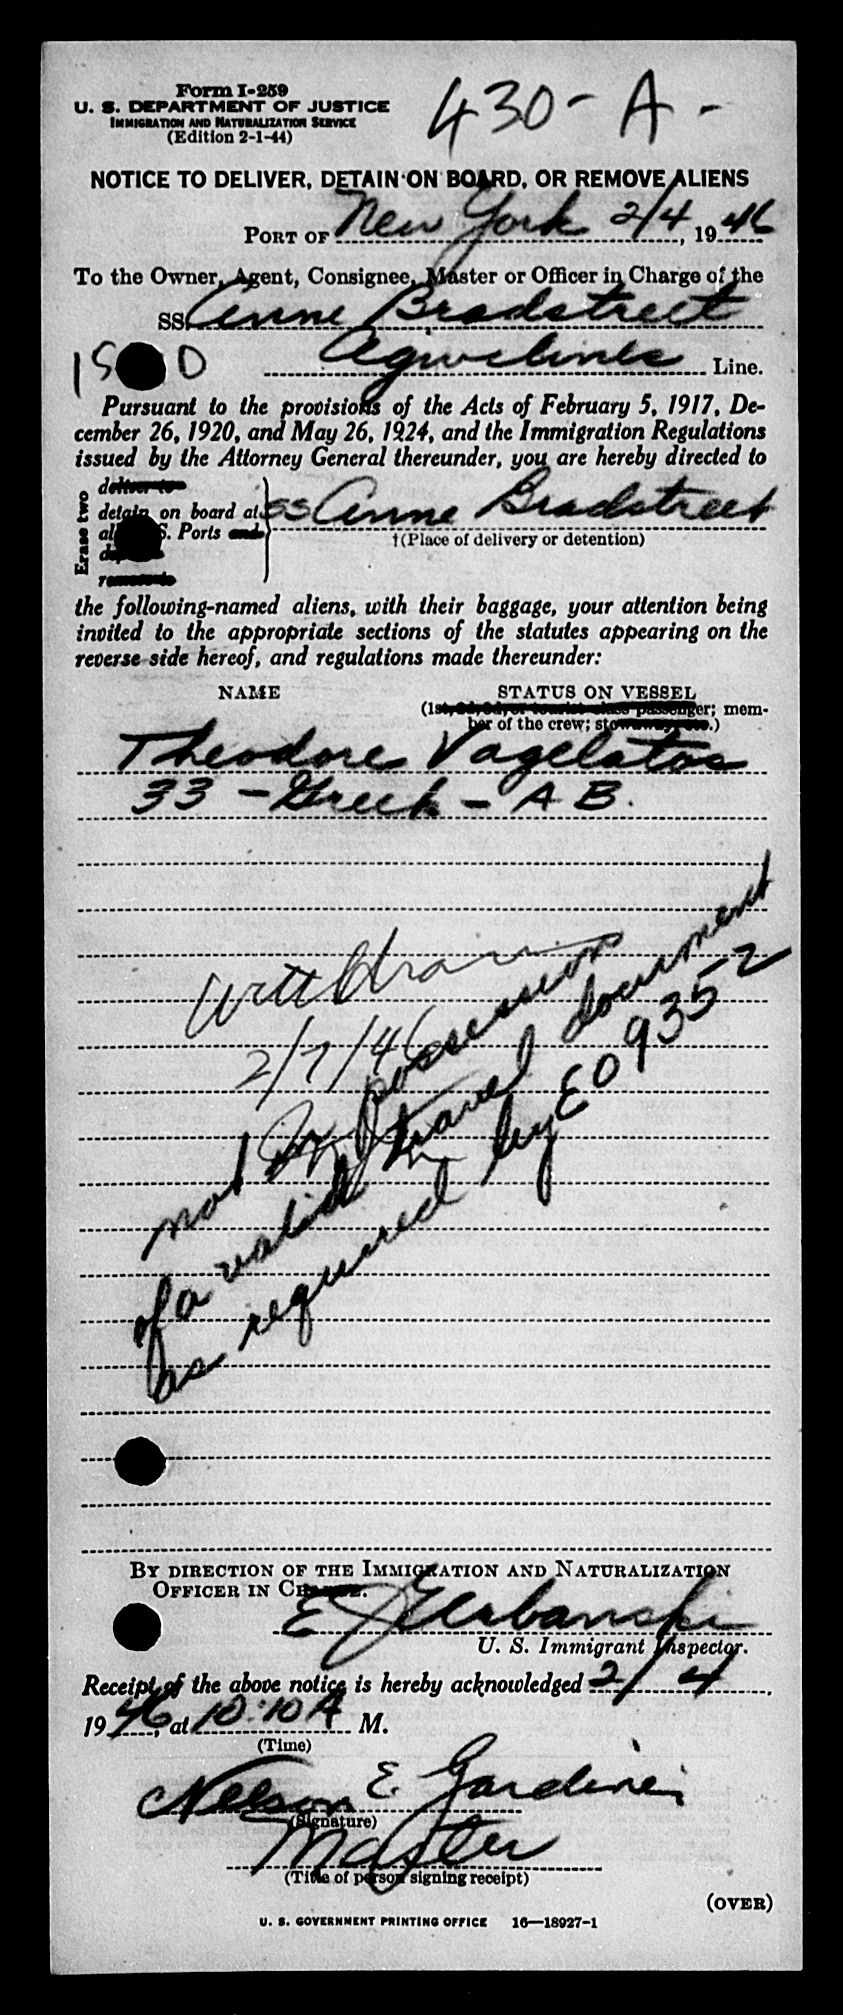 Form I-259
U. S. DEPARTMENT OF JUSTICE
IMMIGRATION AND NATURALIZATION SERVICE
(Edition 2-1-44)
430-A-
NOTICE TO DELIVER, DETAIN ON BOARD, OR REMOVE ALIENS
PORT OF New York 2/4, 1946
To the Owner, Agent, Consignee, Master or Officer in Charge of the
SS. Anne Bradstreet
Agwilines Line.
Pursuant to the provisions of the Acts of February 5, 1917, De-
cember 26, 1920, and May 26, 1924, and the Immigration Regulations
issued by the Attorney General thereunder, you are hereby directed to
Erase two
deliver to
detain on board at SS Anne Bradstreet
al S. Ports and
†(Place of delivery or detention)
remove to
the following-named aliens, with their baggage, your attention being
invited to the appropriate sections of the statutes appearing on the
reverse side hereof, and regulations made thereunder:
NAME STATUS ON VESSEL
(1st, 2d, 3d, or tourist class passenger; mem-
ber of the crew; stowaway, etc.)
Theodore Vagelatos
33 - Greek - A B.
Withdrawn
2/7/46
not in possession
of a valid travel document
as required by EO 9352
BY DIRECTION OF THE IMMIGRATION AND NATURALIZATION
OFFICER IN CHARGE.
E J Urbanski
U. S. Immigrant Inspector.
Receipt of the above notice is hereby acknowledged 2/4,
1946, at 10:10 A M.
(Time)
Nelson E. Gardiner
(Signature)
Master
(Title of person signing receipt)
(OVER)
U. S. GOVERNMENT PRINTING OFFICE 16—18927-1